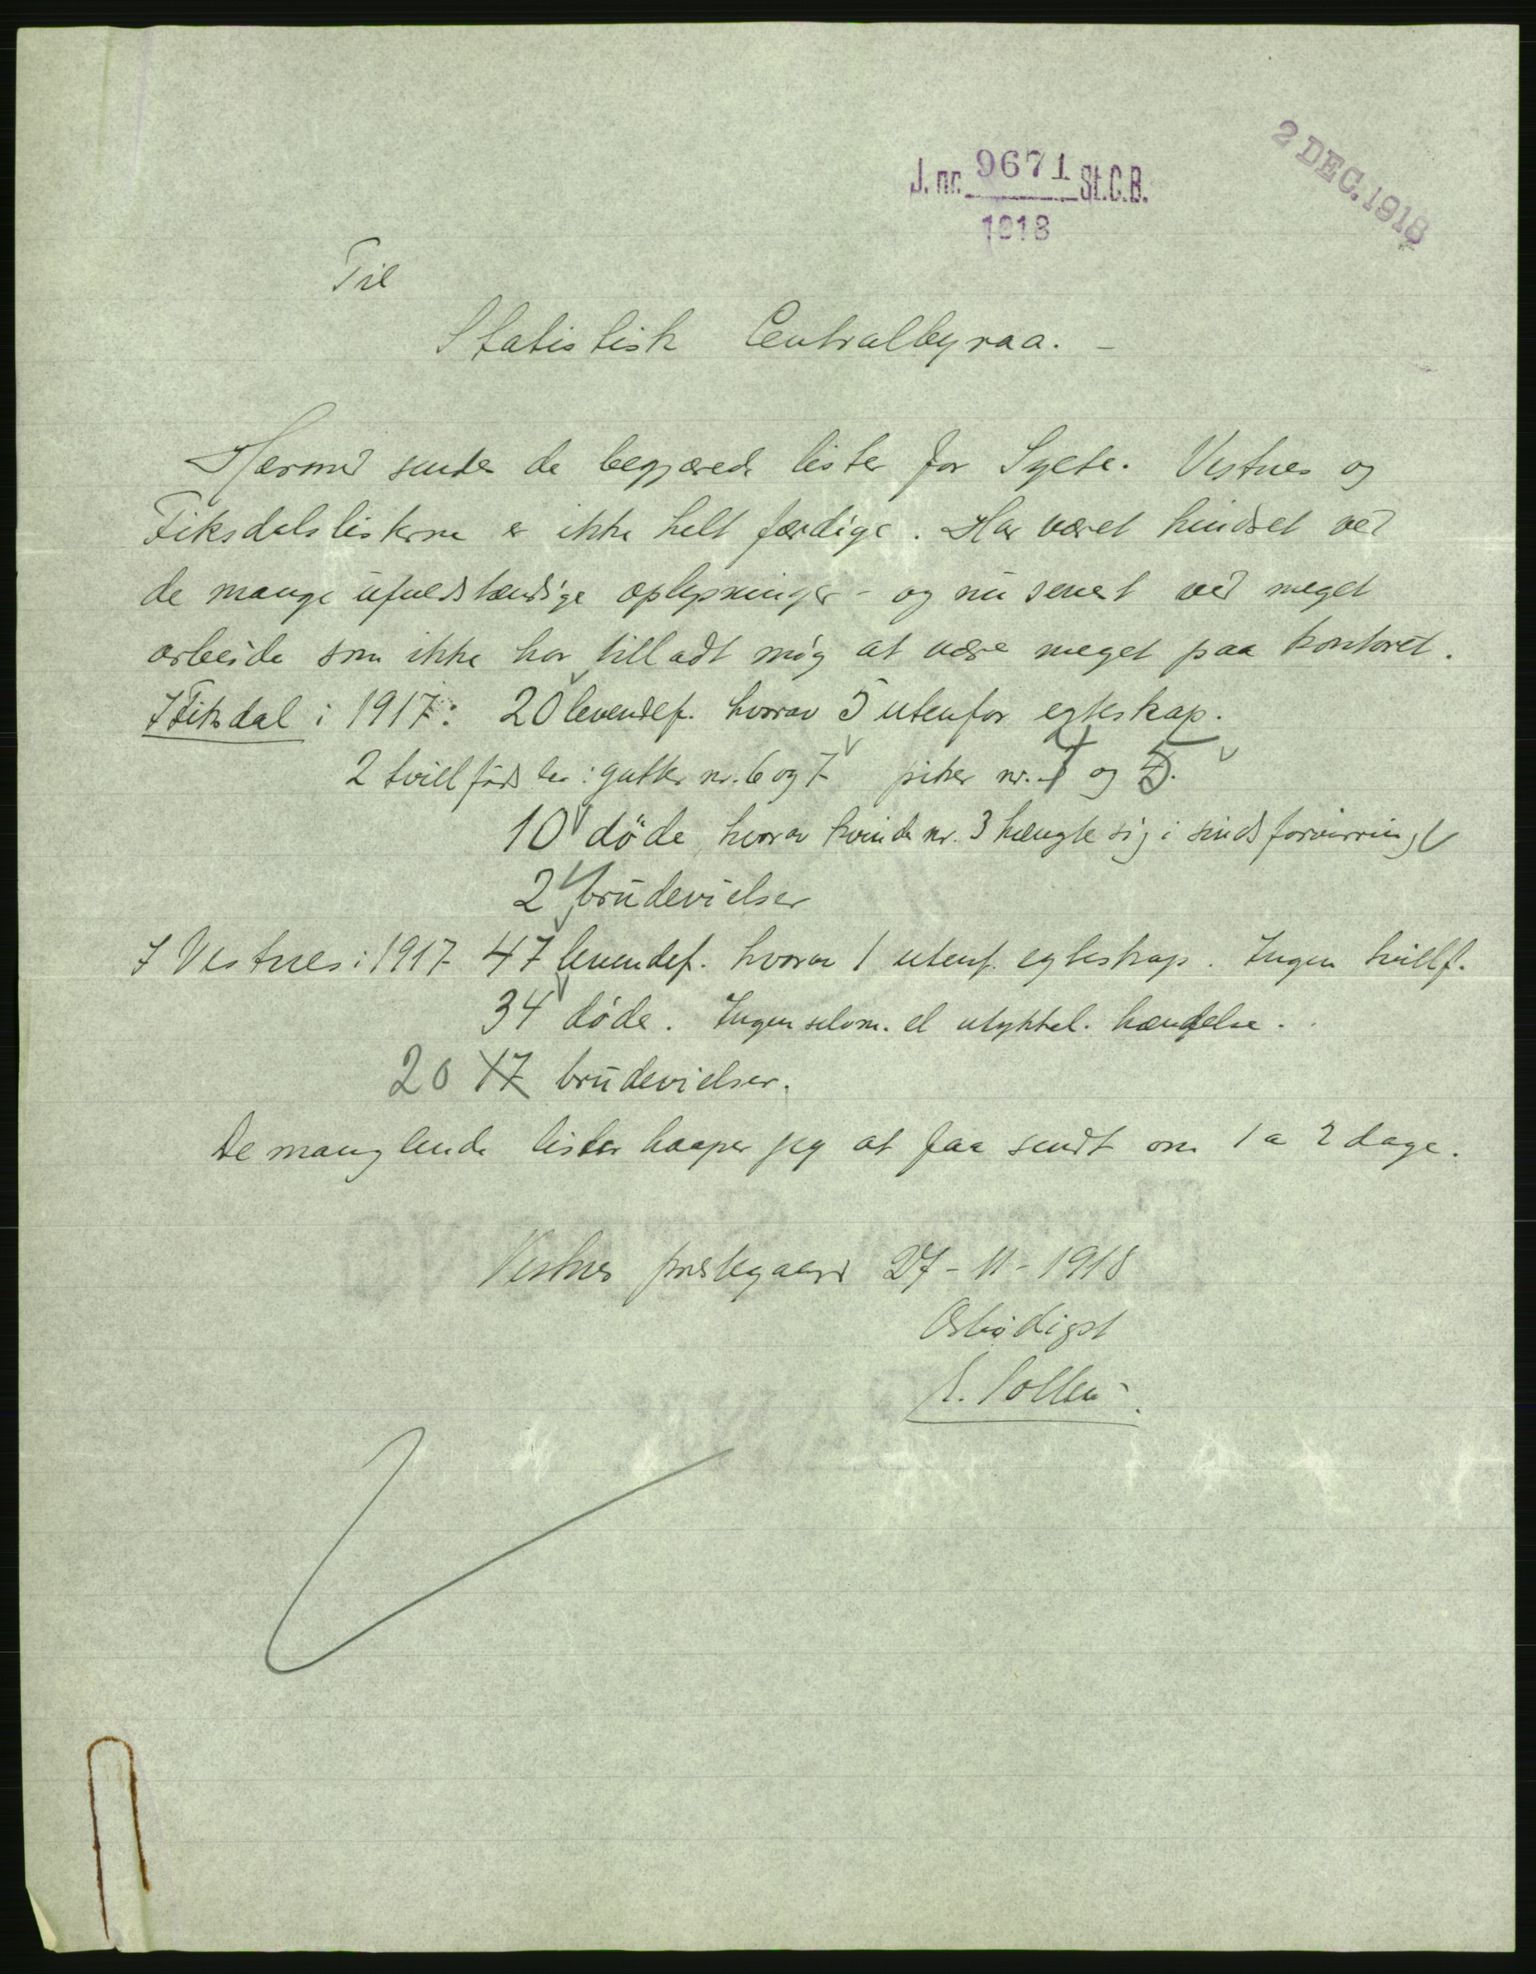 J. nr. 9671 St.C.B.
1918
2 DEC. 1918
Til
Statistisk Centralbyraa. -
Hermed sendes de begjærede lister for Sylte. Vestnes og
Fiksdalslisterne er ikke helt færdige. Har været hindret ved
de mange ufuldstændige oplysninger - og nu senest ved meget
arbeide som ikke har tilladt mig at være meget paa kontoret.
I Fiksdal i 1917: 20 levendef. hvorav 5 utenfor egteskap.
2 tvillfødsler: gutter nr. 6 og 7 piker nr. og 5.
10 døde, hvorav kvinde nr. 3 hængte sig i sindsforvirring
2 brudevielser
I Vestnes i 1917 47 levendef. hvorav 1 utenf. egteskap. Ingen tvillf.
34 døde. Ingen selvm. el ulykkel. hændelse.
20 17 brudevielser.
De manglende lister haaper jeg at faa sendt om 1 a 2 dage.
Vestnes prestegaard 27-11-1918
Ærbødigst